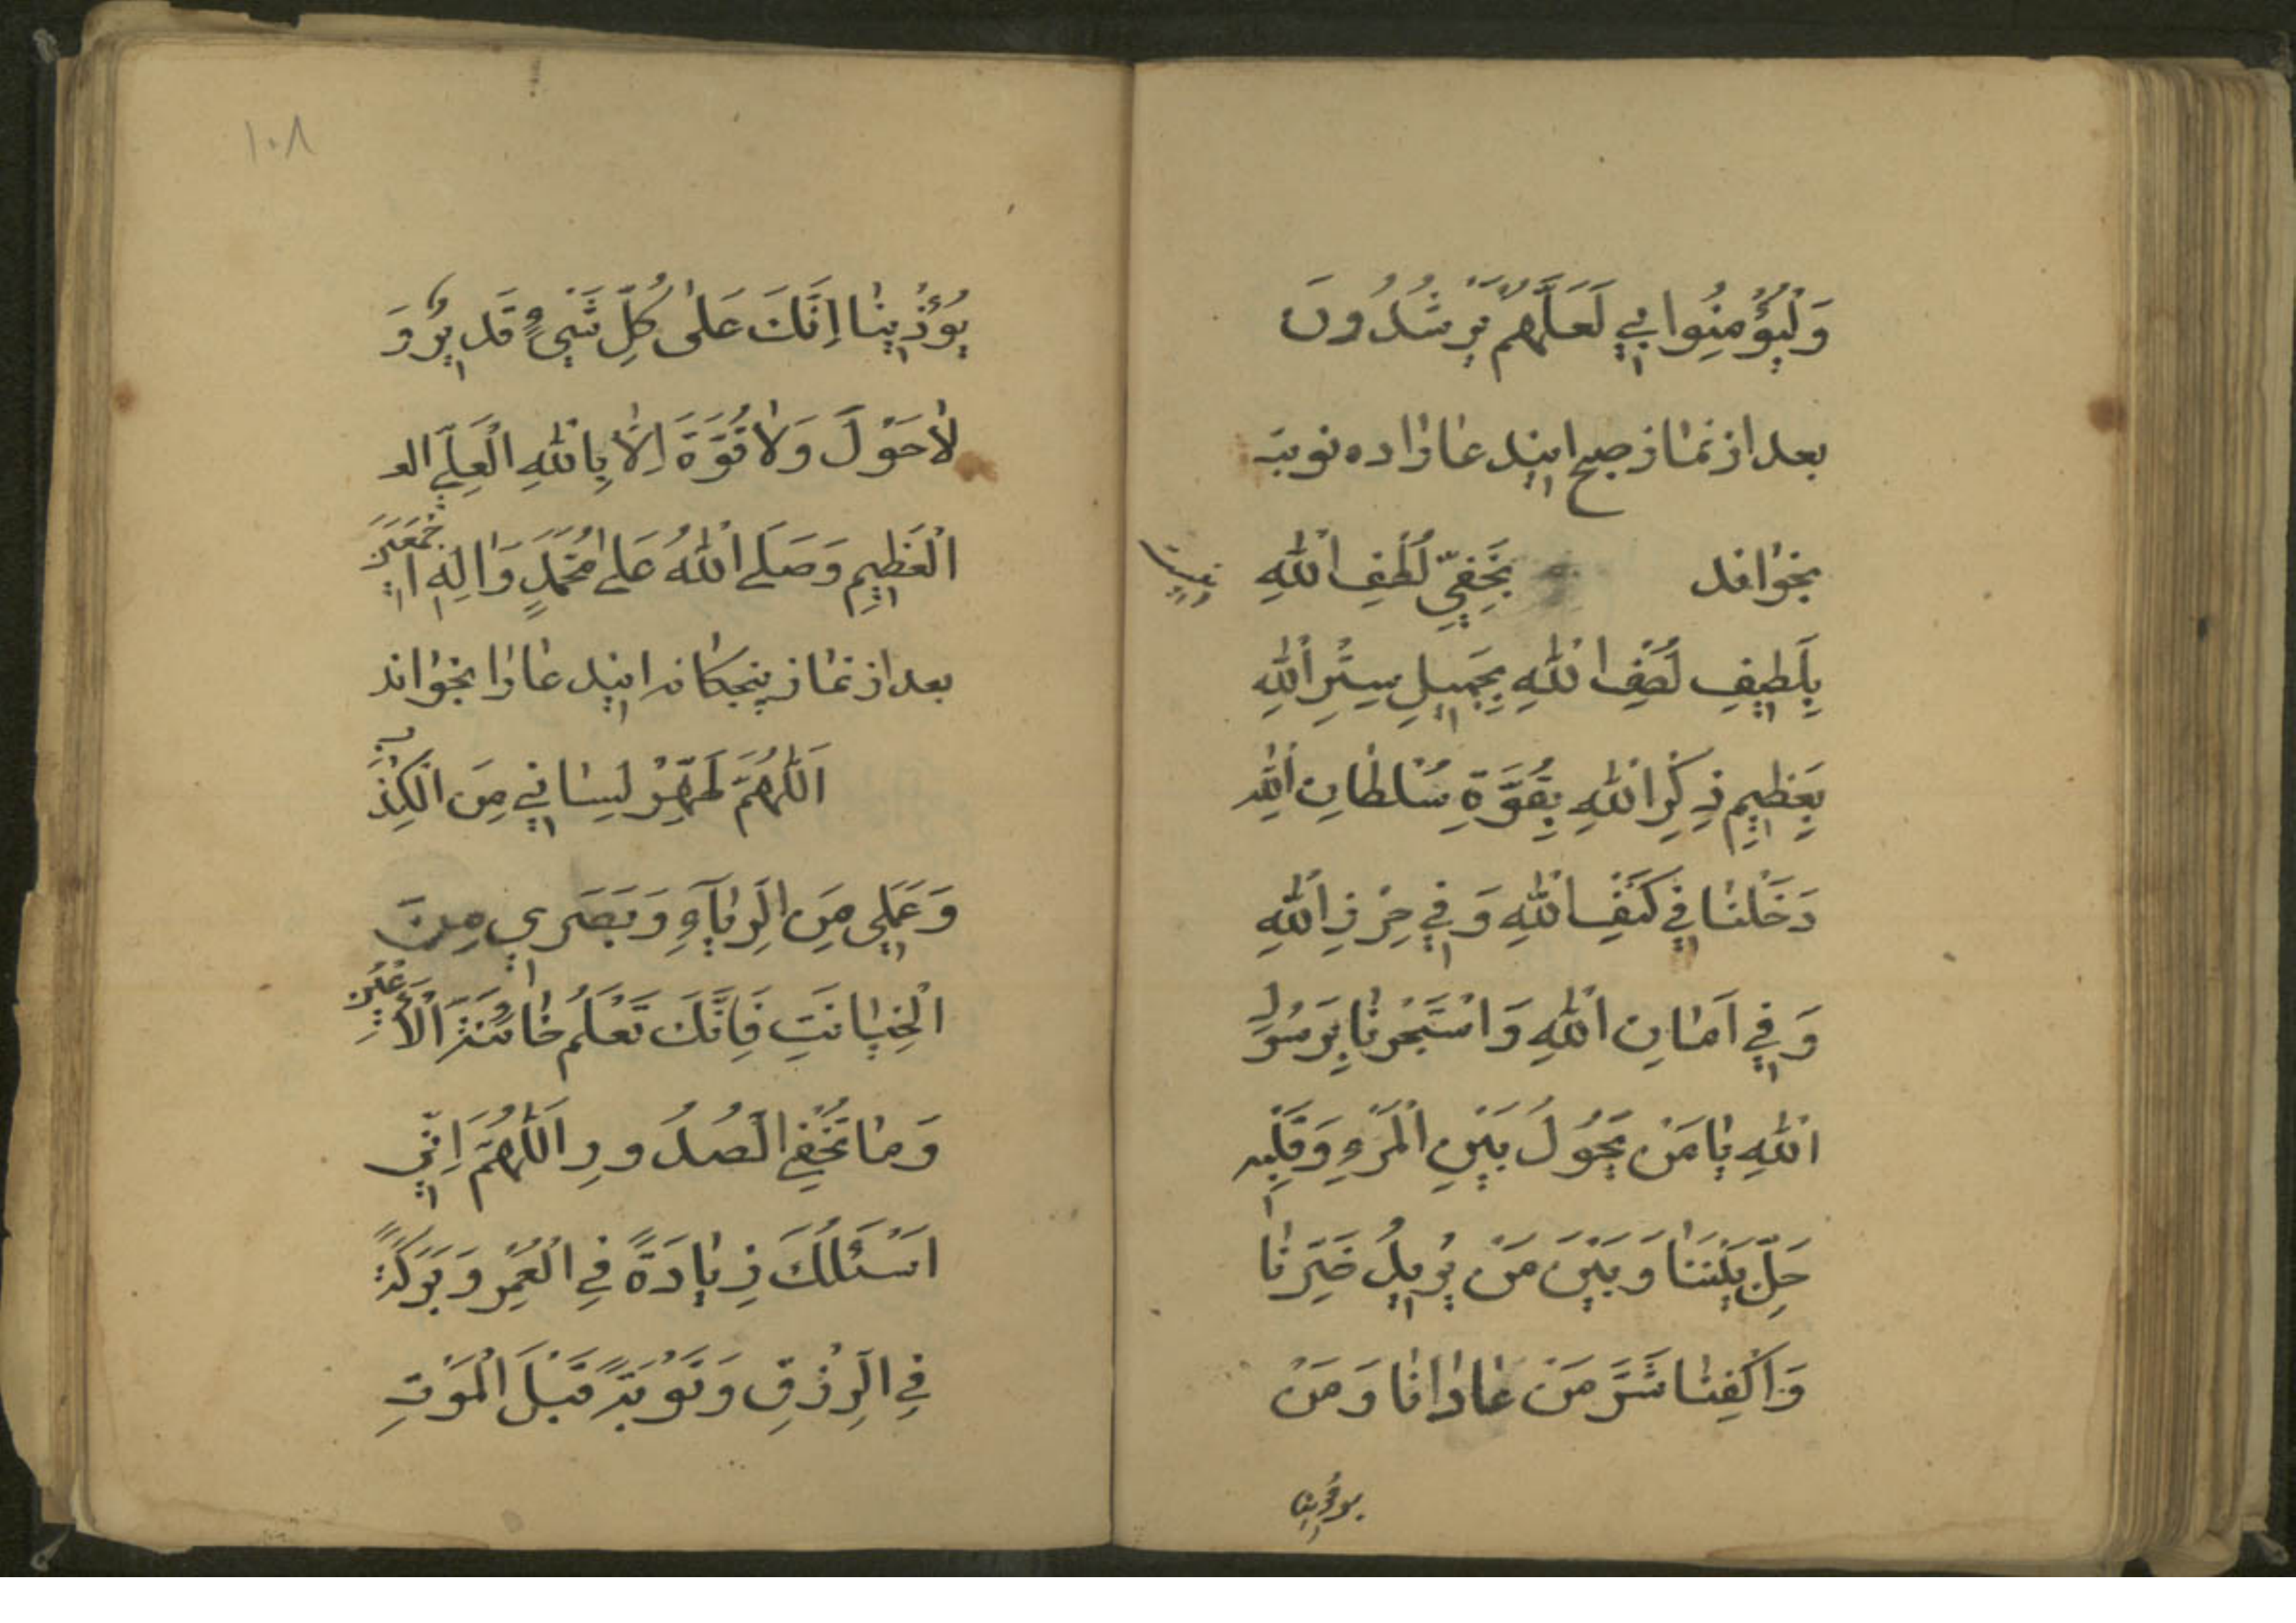 وَلْيُؤْمِنُوا بِي لَعَلَّهُمْ يَرْشُدُونَ
بعد از نماز صبح ایند عا را ده نوبة
بخواند بِخَفِيِّ لُطْفِ اللّٰهِ
بِلَطِيفِ لُصْفِ اللّٰهِ بِجَمِيلِ سِتْرِ اللّٰهِ
بِعَظِيمِ ذِكْرِ اللّٰهِ بِقُوَّةِ سُلْطَانِ اللّٰهِ
دَخَلْنَا فِي كَنَفِ اللّٰهِ وَفِي حِرْزِ اللّٰهِ
وَفِي اَمَانِ اللّٰهِ وَاسْتَجَرْنَا بِرَسُولِ
اللّٰهِ يَا مَنْ يَحُولُ بَيْنِ الْمَرْءِ وَقَلْبِهِ
حِلّ بَيْنَنَا وَبَيْنَ مَنْ يُرِيدُ ضَيْرَنَا
وَاكْفِنَا شَرَّ مَنْ عَادَانَا وَمَنْ
يوذينا
١٠٨
يُؤْذِينَا اِنَّكَ عَلٰى كُلِّ شَيْءٍ قَدِيرٌ وَ
لَاحَوْلَ وَلَا قُوَّةَ اِلَّا بِاللّٰهِ الْعَلِيِّ الع
الْعَظِيمِ وَصَلَى اللّٰهُ عَلٰى مُحَمَّدٍ وَاٰلِهِ اجْمَعِينَ
بعد از نماز پنجكانه ایند عا را بخواند
اَللّٰهُمَّ طَهِّرْ لِسَانِي مِنَ الْكِذْبِ
وَعَمَلِي مِنَ الرِّيَآءِ وَبَصَرِي مِنَ
الْخِيَانَتِ فَاِنَّكَ تَعْلَمُ خَائِنَةَ الْاَعْيُنِ
وَمَا تُخْفِي الصُدُورِ اَللّٰهُمَّ اِنِّي
اَسْئَلُكَ زِيَادَةً فِي الْعُمْرِ وَبَرَكَةً
فِي الرِّزْقِ وَتَوْبَةً قَبْلَ الْمَوْتِ